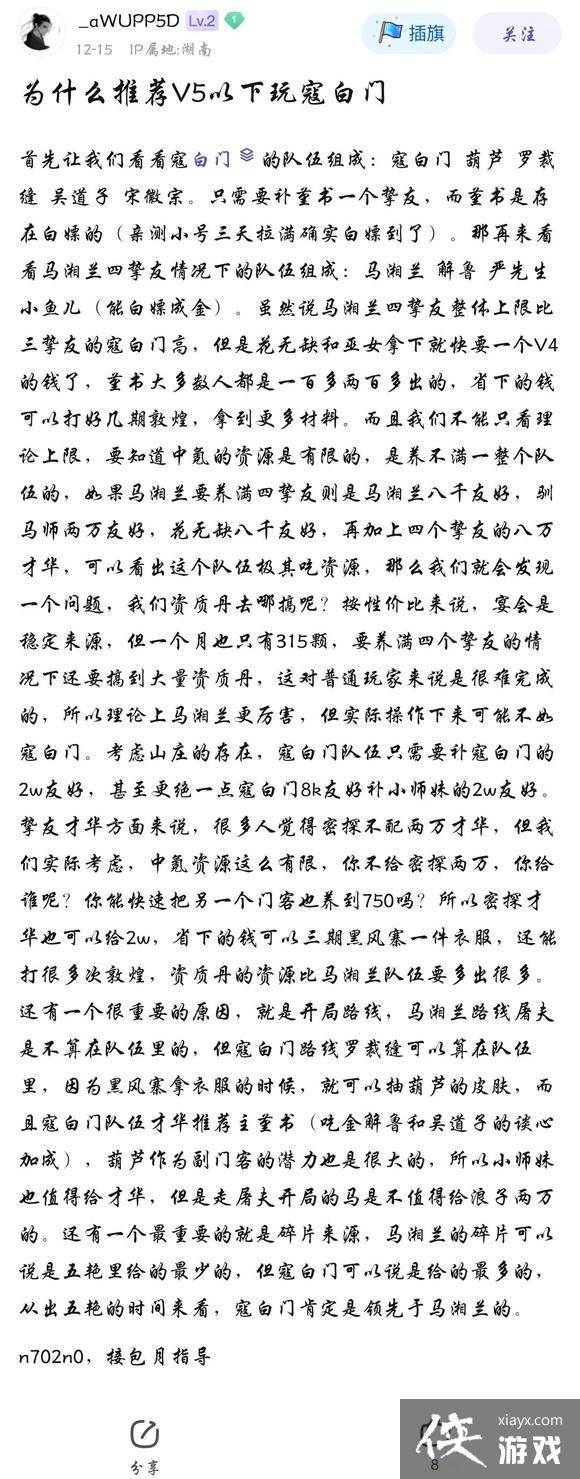 _aWUPP5D Lv.2 1
12-15 IP属地:湖南
插旗
关注
为什么推荐V5以下玩寇白门
首先让我们看看寇白门 的队伍组成：寇白门 葫芦 罗裁
缝 吴道子 宋徽宗。只需要补董书一个挚友，而董书是存
在白嫖的（亲测小号三天拉满确实白嫖到了）。那再来看
看马湘兰四挚友情况下的队伍组成：马湘兰 解鲁 严先生
小鱼儿（能白嫖成金）。虽然说马湘兰四挚友整体上限比
三挚友的寇白门高，但是花无缺和巫女拿下就快要一个V4
的钱了，董书大多数人都是一百多两百多出的，省下的钱
可以打好几期敦煌，拿到更多材料。而且我们不能只看理
论上限，要知道中氪的资源是有限的，是养不满一整个队
伍的，如果马湘兰要养满四挚友则是马湘兰八千友好，驯
马师两万友好，花无缺八千友好，再加上四个挚友的八万
才华，可以看出这个队伍极其吃资源，那么我们就会发现
一个问题，我们资质丹去哪搞呢？按性价比来说，宴会是
稳定来源，但一个月也只有315颗，要养满四个挚友的情
况下还要搞到大量资质丹，这对普通玩家来说是很难完成
的，所以理论上马湘兰更厉害，但实际操作下来可能不如
寇白门。考虑山庄的存在，寇白门队伍只需要补寇白门的
2w友好，甚至更绝一点寇白门8k友好补小师妹的2w友好。
挚友才华方面来说，很多人觉得密探不配两万才华，但我
们实际考虑，中氪资源这么有限，你不给密探两万，你给
谁呢？你能快速把另一个门客也养到750吗？所以密探才
华也可以给2w，省下的钱可以三期黑风寨一件衣服，还能
打很多次敦煌，资质丹的资源比马湘兰队伍要多出很多。
还有一个很重要的原因，就是开局路线，马湘兰路线屠夫
是不算在队伍里的，但寇白门路线罗裁缝可以算在队伍
里，因为黑风寨拿衣服的时候，就可以抽葫芦的皮肤，而
且寇白门队伍才华推荐主董书（吃金解鲁和吴道子的谈心
加成），葫芦作为副门客的潜力也是很大的，所以小师妹
也值得给才华，但是走屠夫开局的马是不值得给浪子两万
的。还有一个最重要的就是碎片来源，马湘兰的碎片可以
说是五艳里给的最少的，但寇白门可以说是给的最多的，
从出五艳的时间来看，寇白门肯定是领先于马湘兰的。
n702n0，接包月指导
分享
8
xiayx.com
侠游戏